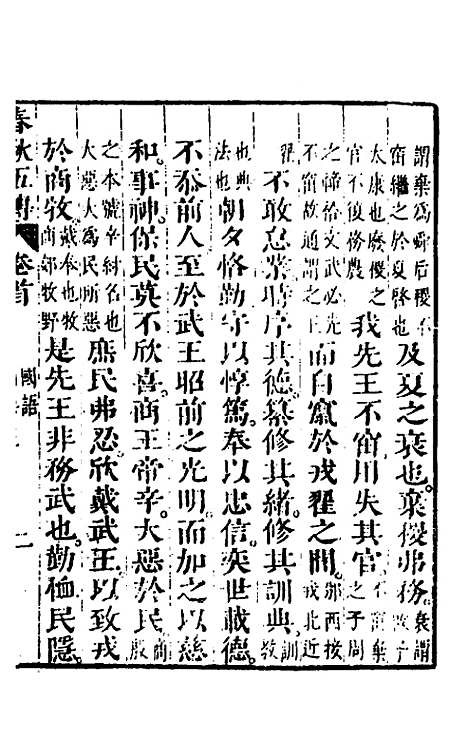 謂棄為舜后稷不窋繼之於夏啓也及夏之衰也。棄稷弗務。衰謂啓子
太康也廢稷之官不復務農我先王不窋用失其官不窋棄之子周
之禘祫文武必先不窋故通謂之王而自竄於戎翟之間。邠西接戎北近
翟不敢怠業時序其德。纂修其緒。修其訓典。訓教
也典法也朝夕恪勤守以惇篤。奉以忠信。奕世載德。
不忝前人至於武王昭前之光明。而加之以慈
和。事神保民莫不欣喜。商王帝辛。大惡於民。商殷
之本號辛紂名也大惡大為民所惡庶民弗忍。欣戴武王。以致戎
於商牧戴奉也牧商郊牧野是先王非務武也。勤恤民隱。
春秋五傳 卷首 國語 二